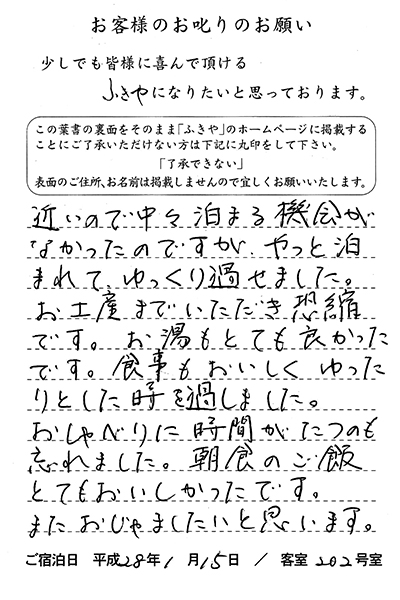 お客様のお叱りのお願い
少しでも皆様に喜んで頂ける
ふきやになりたいと思っております。
この葉書の裏面をそのまま「ふきや」のホームページに掲載する
ことにご了承いただけない方は下記に丸印をして下さい。
「了承できない」
表面のご住所、お名前は掲載しませんので宜しくお願いいたします。
近いので中々泊まる機会が
なかったのですが、やっと泊
まれて、ゆっくり過せました。
お土産までいただき恐縮
です。お湯もとても良かった
です。食事もおいしくゆった
りとした時を過しました。
おしゃべりに時間がたつのも
忘れました。朝食のご飯
とてもおいしかったです。
またおじゃましたいと思います。
ご宿泊日 平成28年1月15日 / 客室 202号室